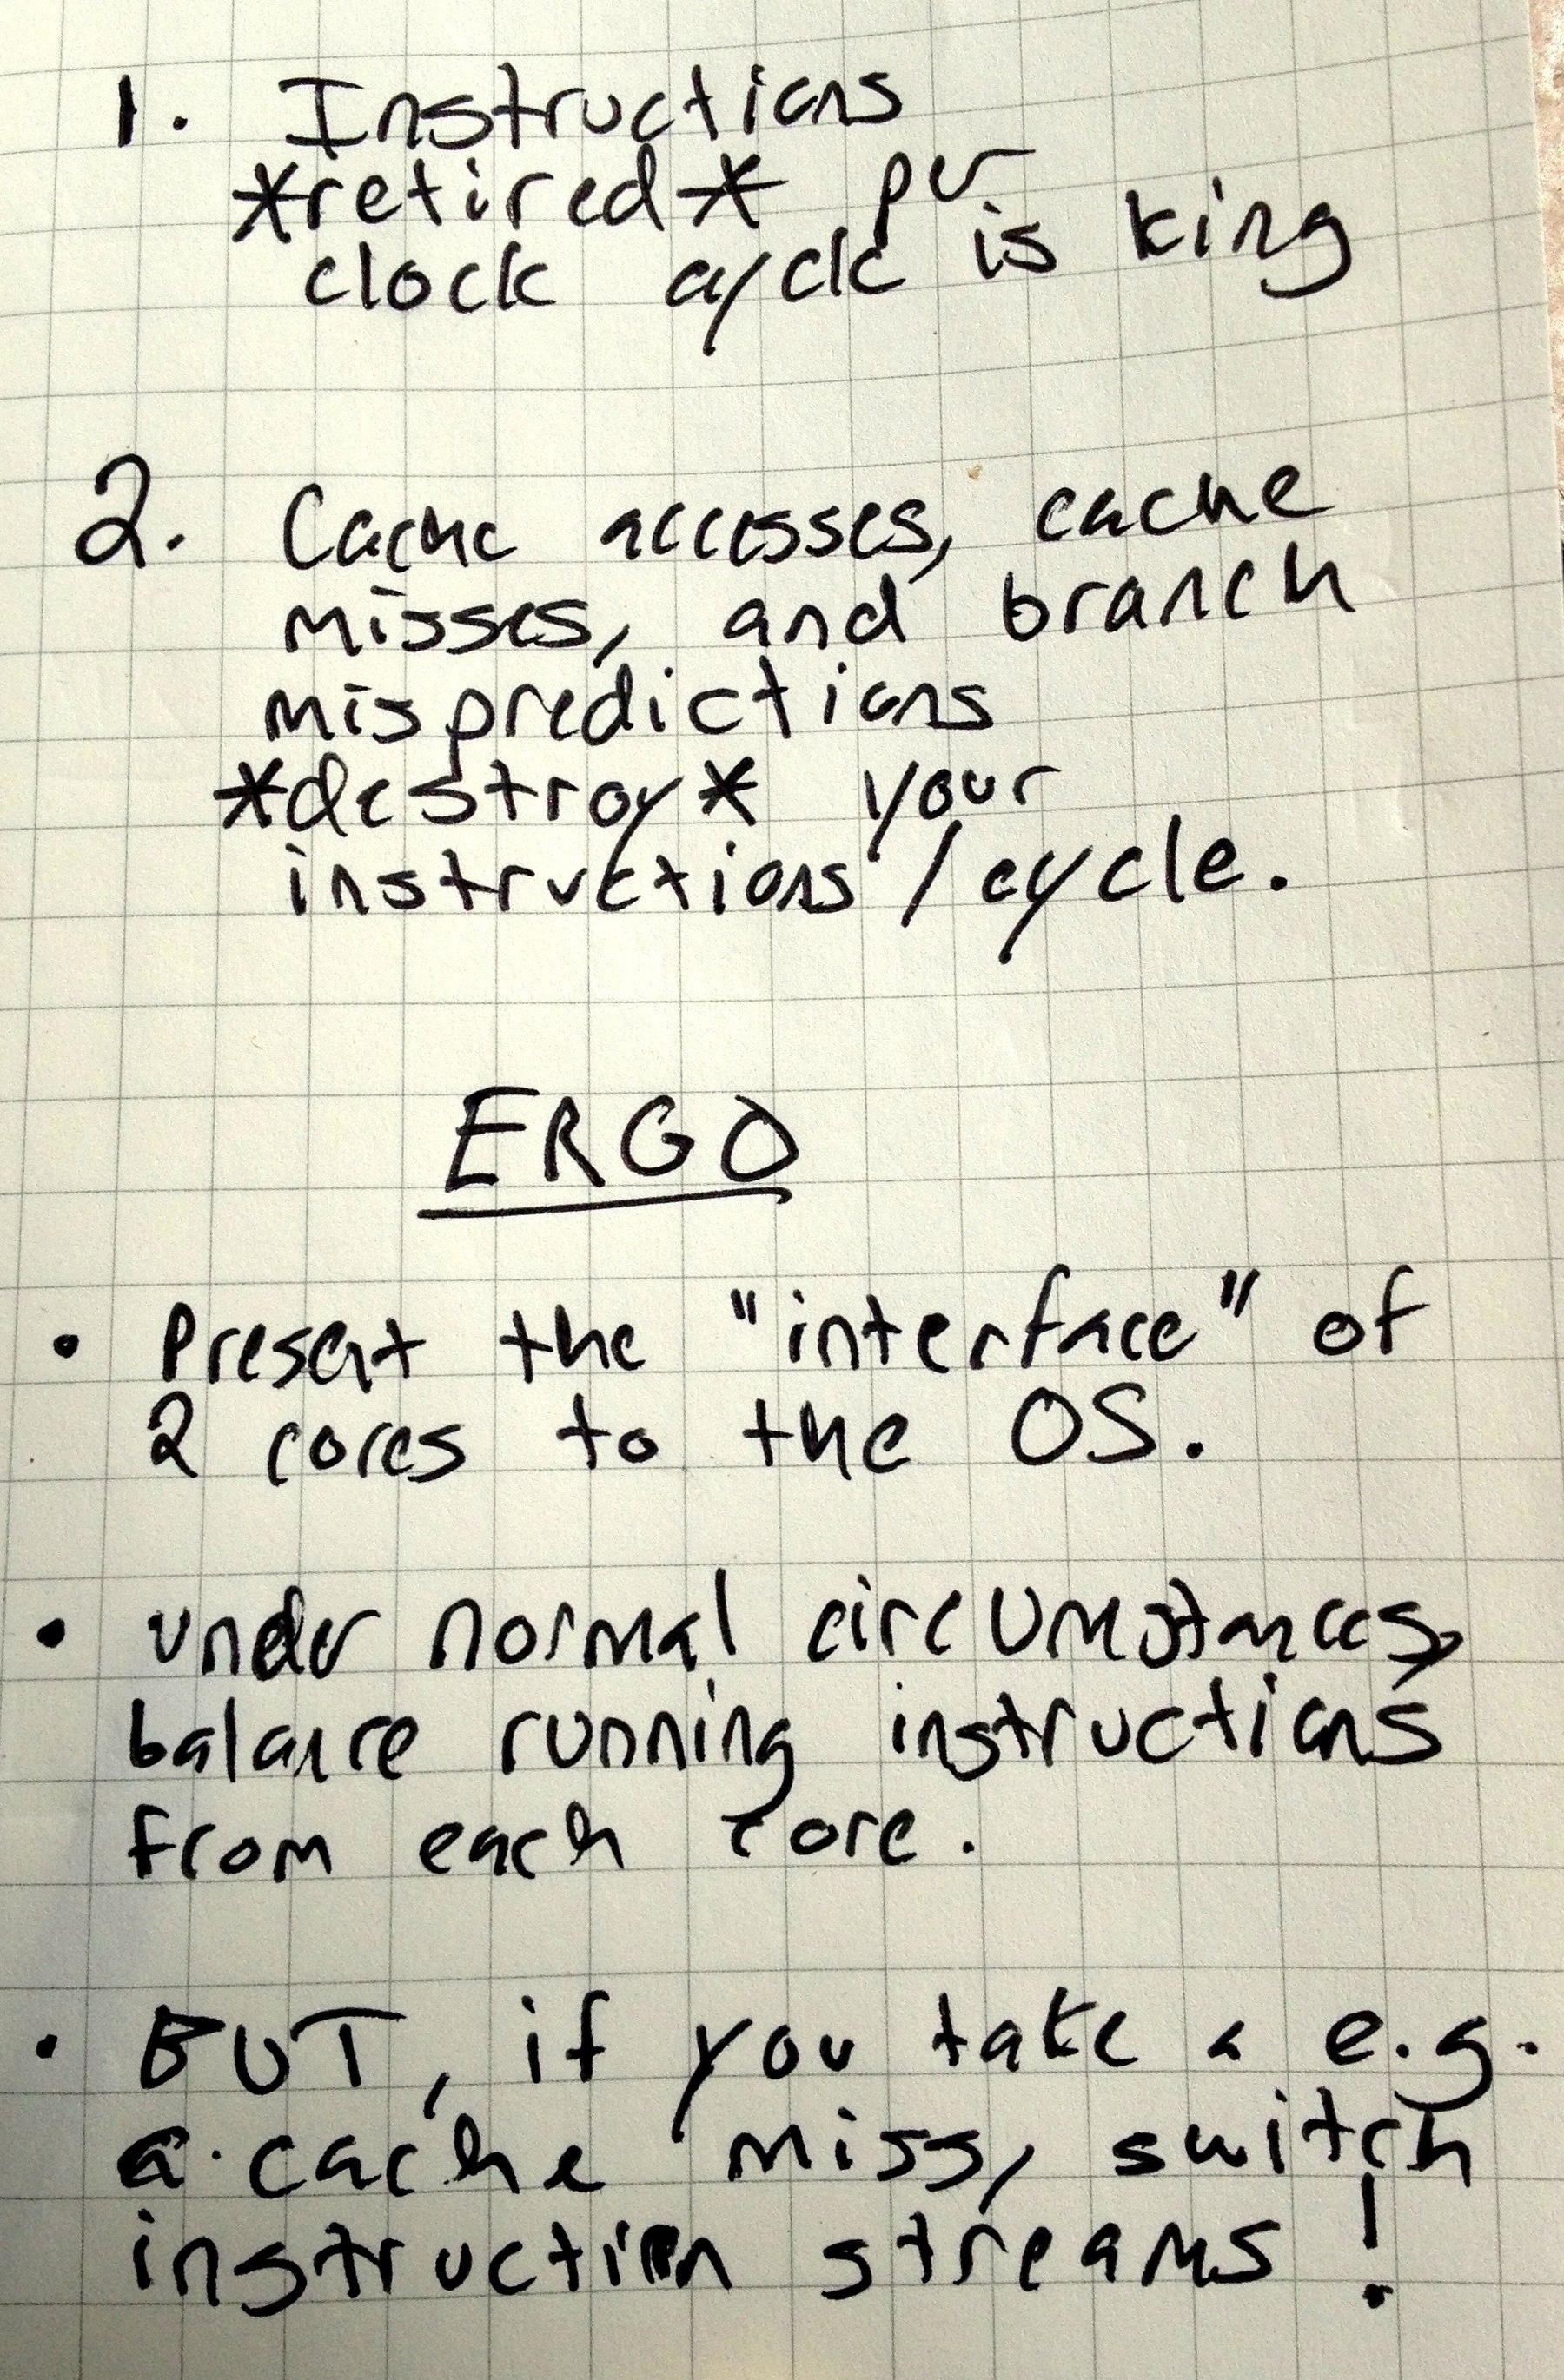 1. Instructions
*retired* per
clock cycle is king
2. Cache accesses, cache
misses, and branch
mispredictions
*destroy* your
instructions/cycle.
ERGO
• Present the "interface" of
2 cores to the OS.
• under normal circumstances,
balance running instructions
from each core.
• BUT, if you take a e.g.
a cache miss, switch
instruction streams!